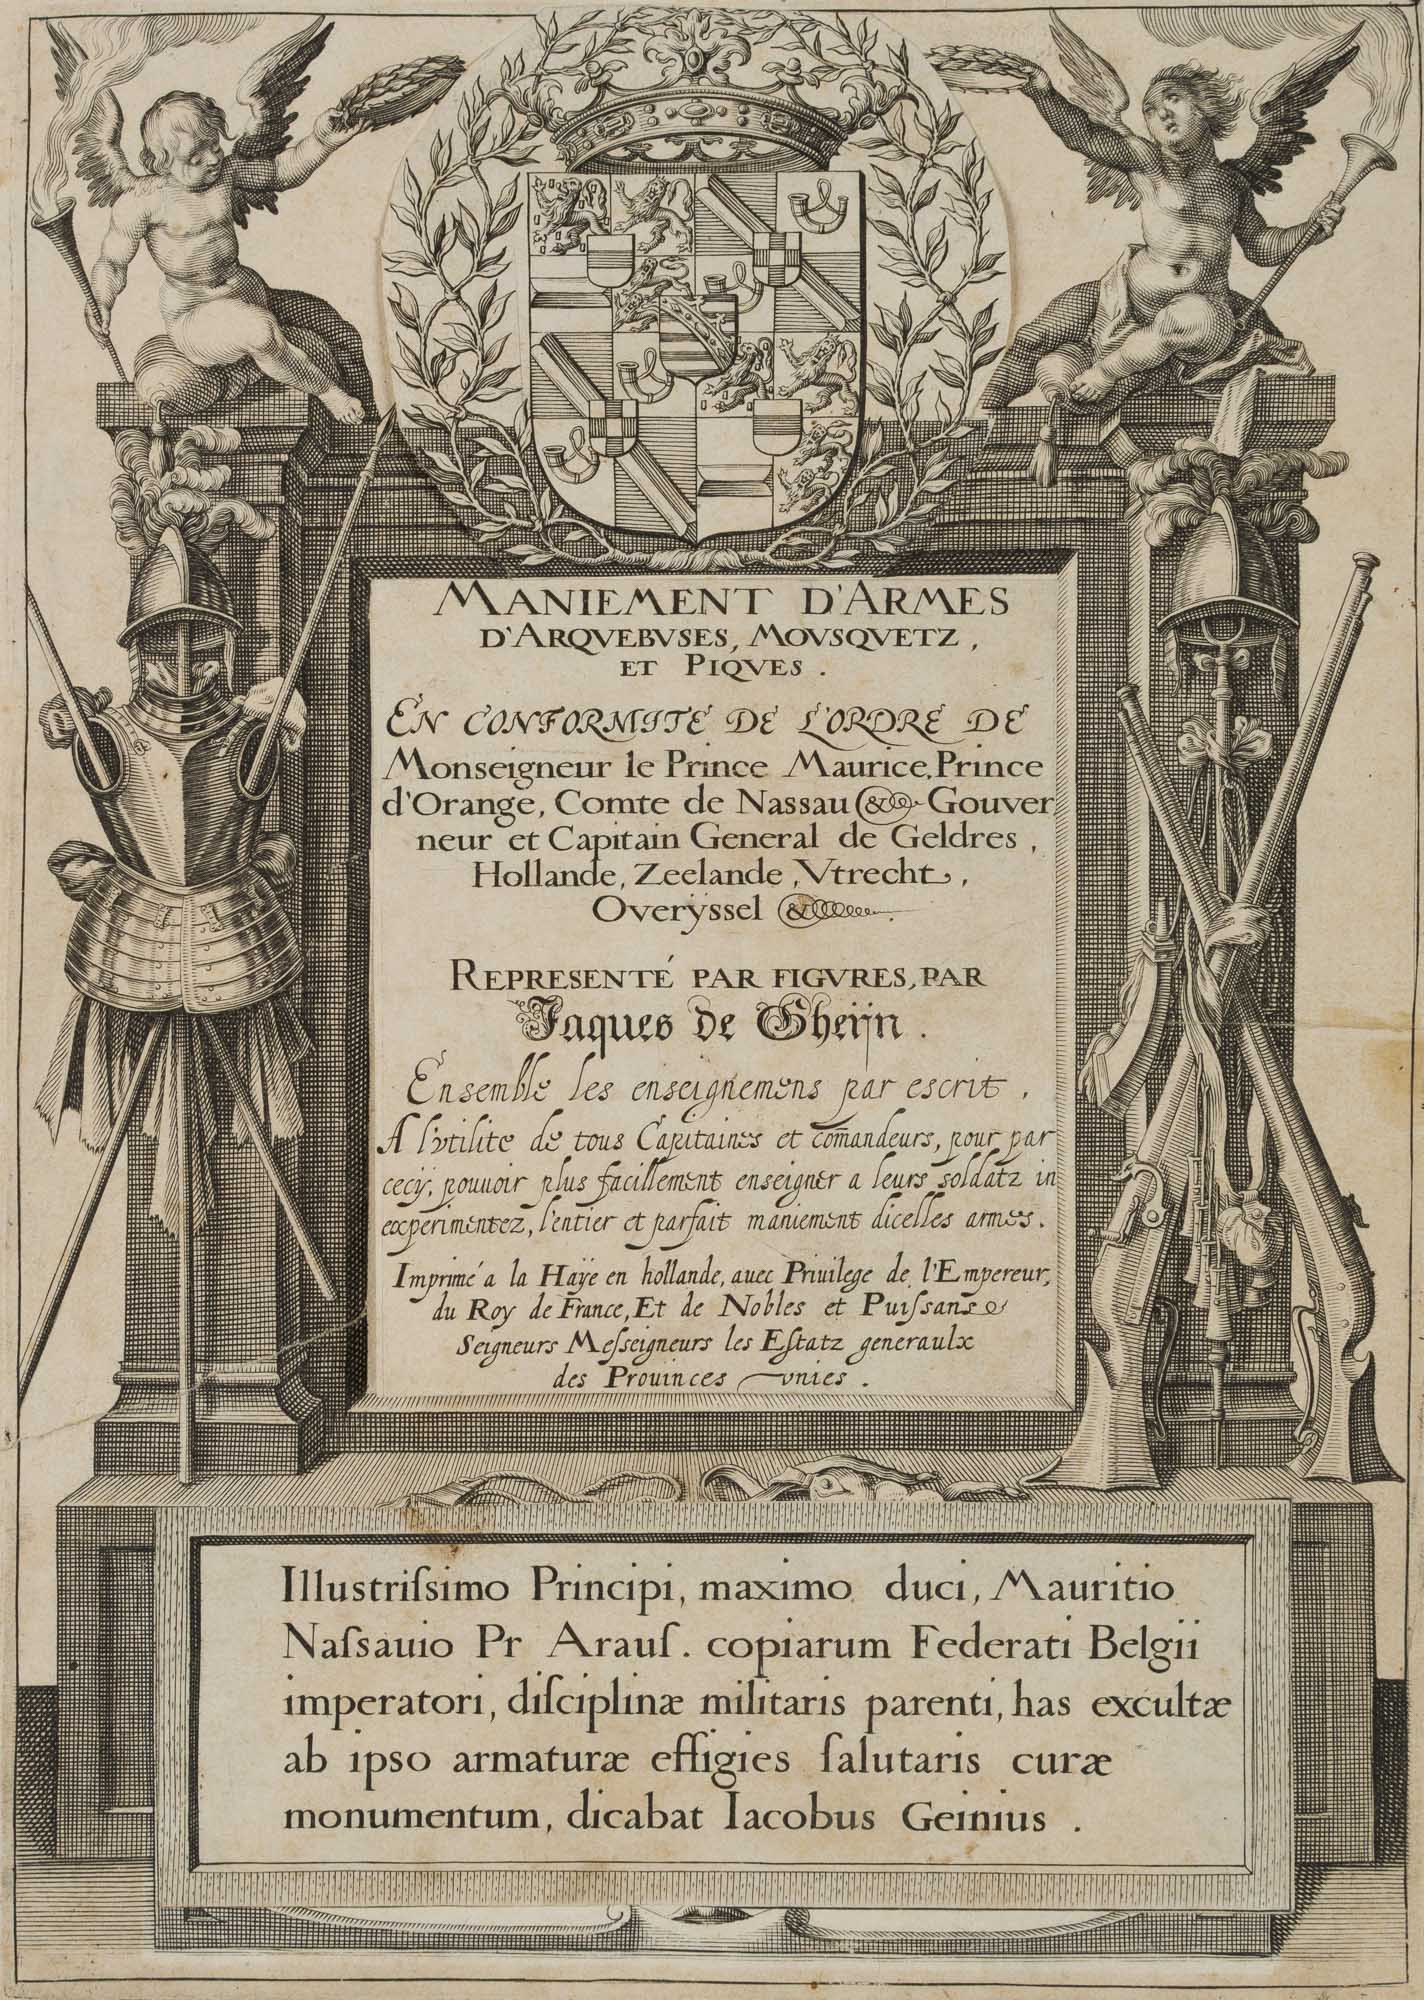 MANIEMENT D'ARMES
D'ARQVEBVSES, MOVSQVETZ,
ET PIQVES.
EN CONFORMITE DE L'ORDRE DE
Monseigneur le Prince Maurice, Prince
d'Orange, Comte de Nassau & Gouver
neur et Capitain General de Geldres,
Hollande, Zeelande, Vtrecht,
Overÿssel &.
REPRESENTÉ PAR FIGVRES, PAR
Jaques de Gheijn.
Ensemble les enseignemens par escrit,
A l'vtilite de tous Capitaines et com̄andeurs, pour par
cecÿ, pouuoir plus facillement enseigner a leurs soldatz in
experimentez, l'entier et parfait maniement dicelles armes.
Imprimé a la Haÿe en hollande, auec Priuilege de l'Empereur,
du Roy de France, Et de Nobles et Puiſsans
Seigneurs Meſseigneurs les Eſtatz generaulx
des Prouinces vnies.
Illustriſsimo Principi, maximo duci, Mauritio
Naſsauio Pr Arauſ. copiarum Federati Belgii
imperatori, diſciplinæ militaris parenti, has excultæ
ab ipso armaturæ effigies ſalutaris curæ
monumentum, dicabat Iacobus Geinius.